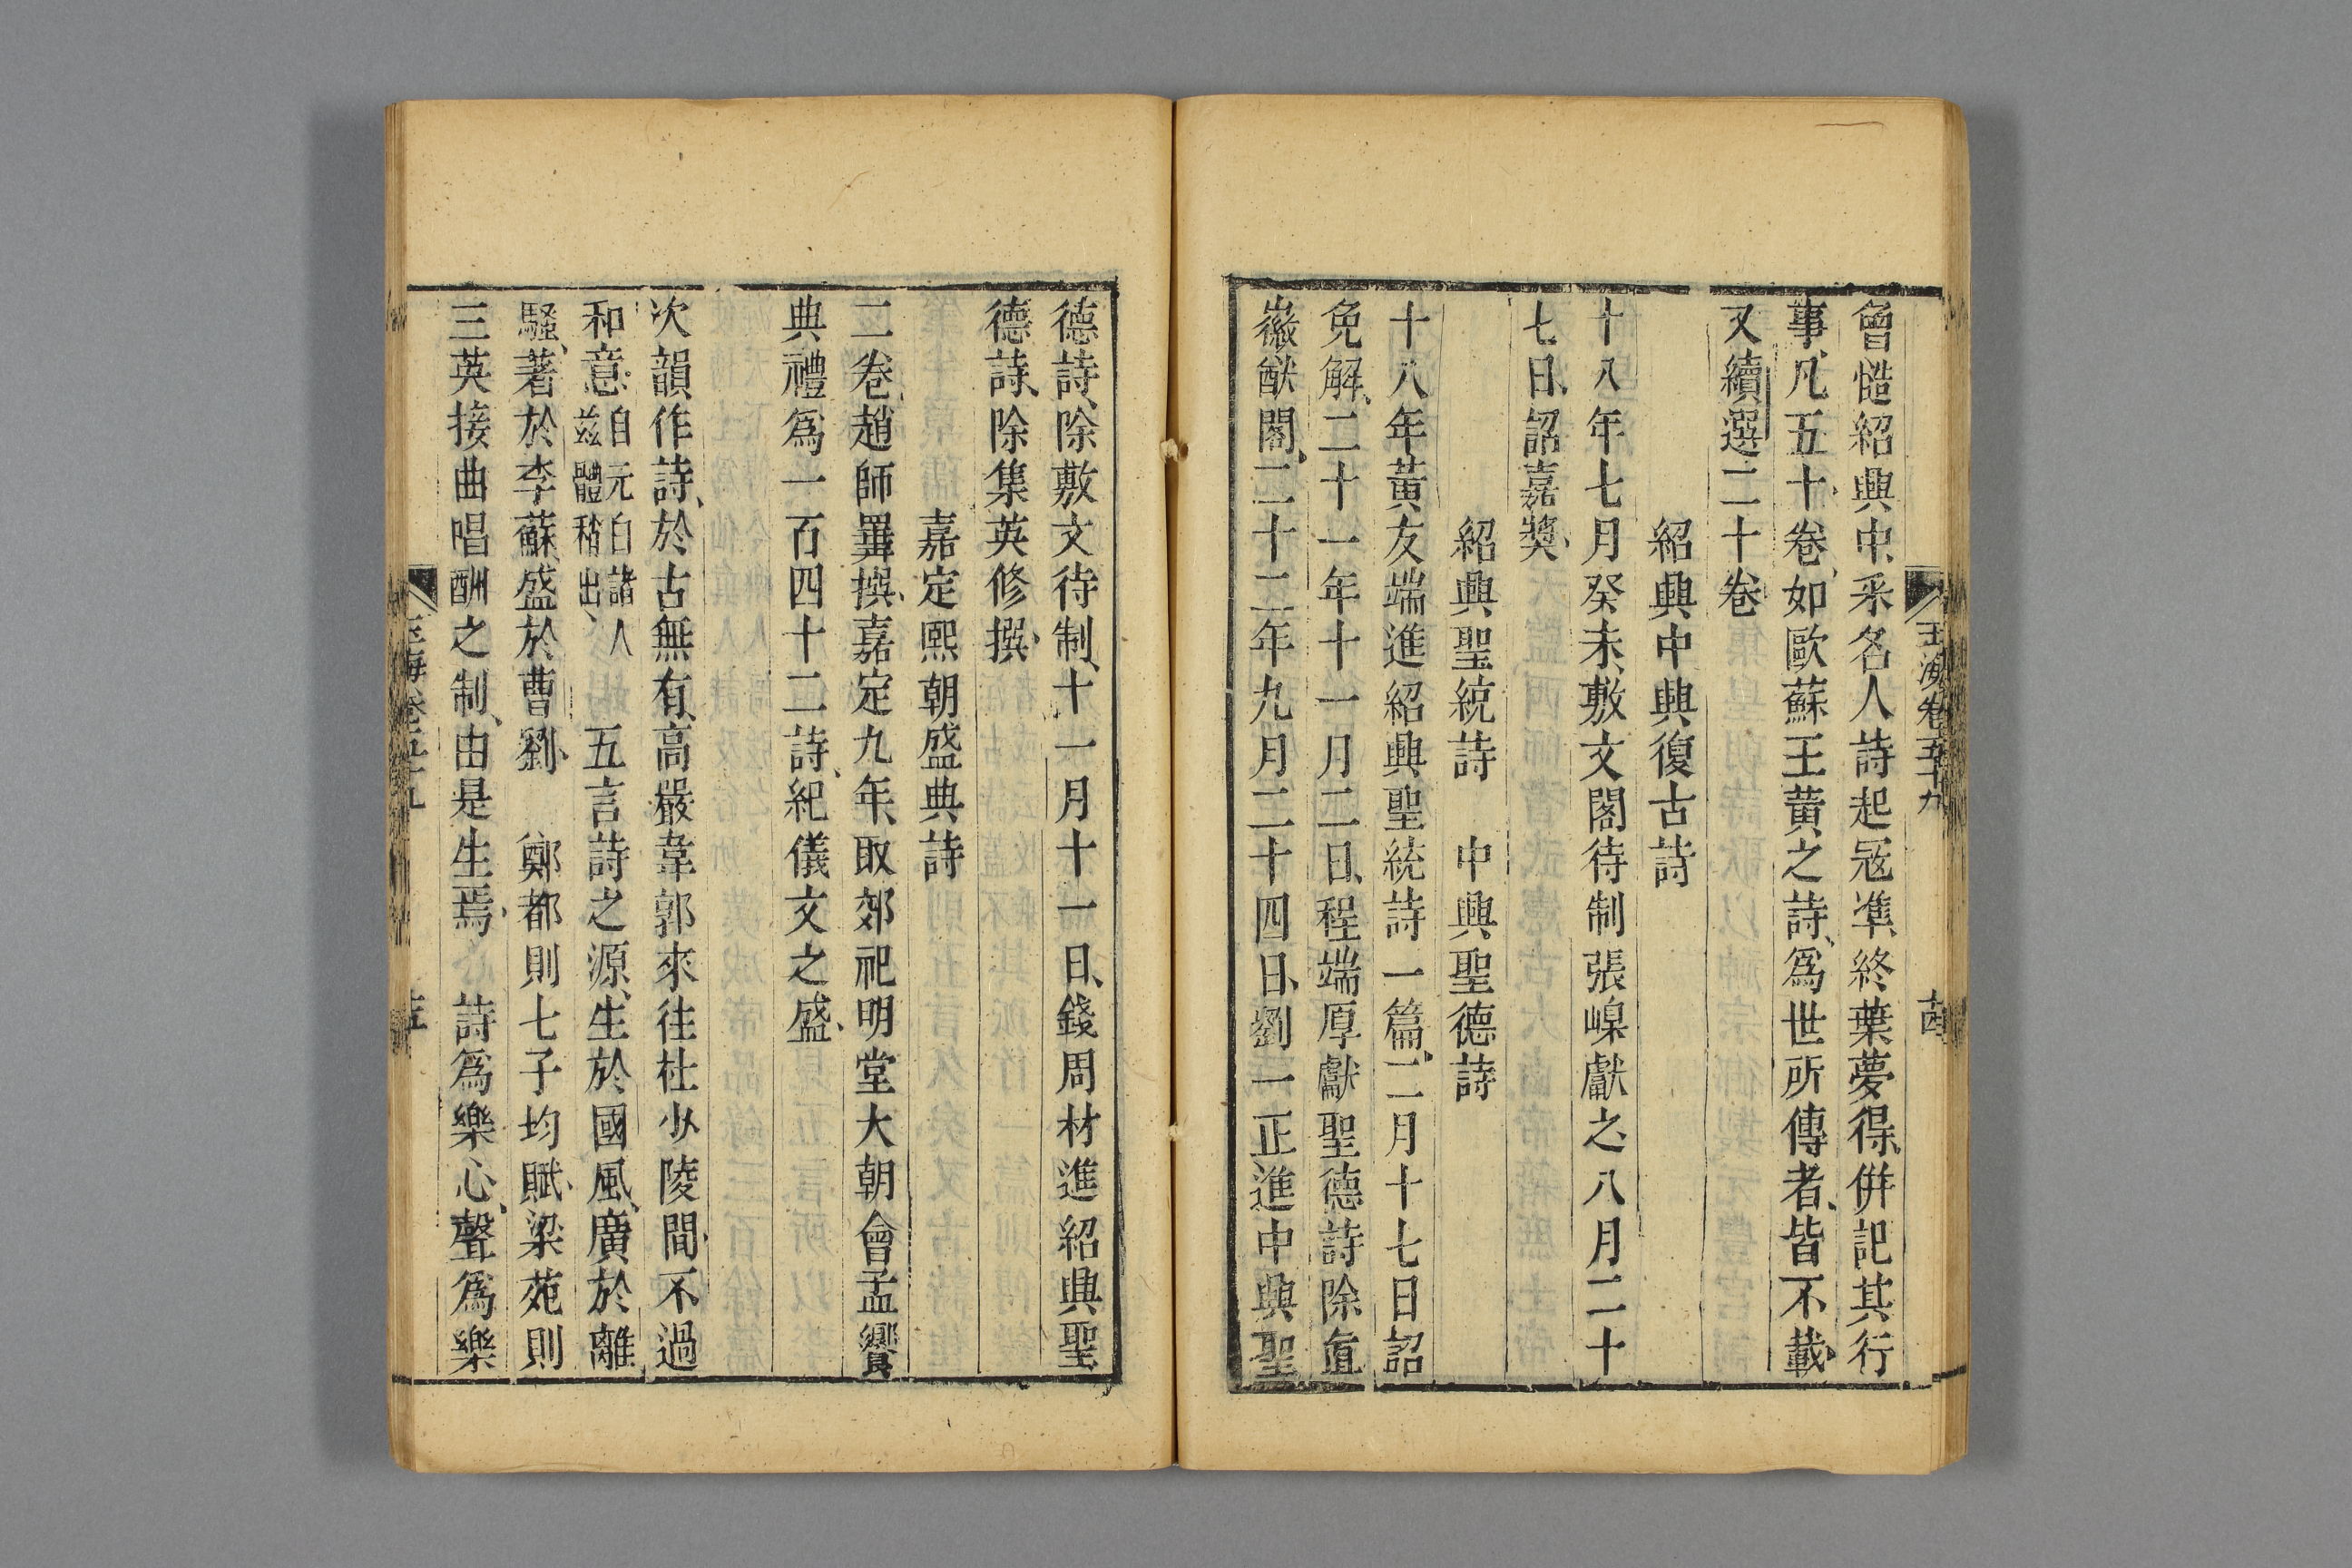 玉海卷五十九
十四
曾慥紹興中采名人詩起冦凖終葉夢得併記其行
事凡五十卷如歐蘇王黃之詩爲世所傳者皆不載
又續選二十卷
紹興中興復古詩
十八年七月癸未敷文閣待制張嵲獻之八月二十
七日詔嘉奬
紹興聖統詩　中興聖德詩
十八年黃友端進紹興聖統詩一篇二月十七日詔
免解二十一年十一月二日程端厚獻聖德詩除直
徽猷閣二十二年九月二十四日劉一正進中興聖
德詩除敷文待制十一月十一日錢周材進紹興聖
德詩除集英修撰
嘉定熙朝盛典詩
二卷趙師𢍰撰嘉定九年取郊祀明堂大朝會孟饗
典禮爲一百四十二詩紀儀文之盛
次韻作詩於古無有高嚴韋郭來往杜少陵間不過
和意自元白諸人兹體稍出　五言詩之源生於國風廣於離
騷著於李蘇盛於曹劉　鄭都則七子均賦梁苑則
三英接曲唱酬之制由是生焉　詩爲樂心聲爲樂
玉海卷五十九
十五